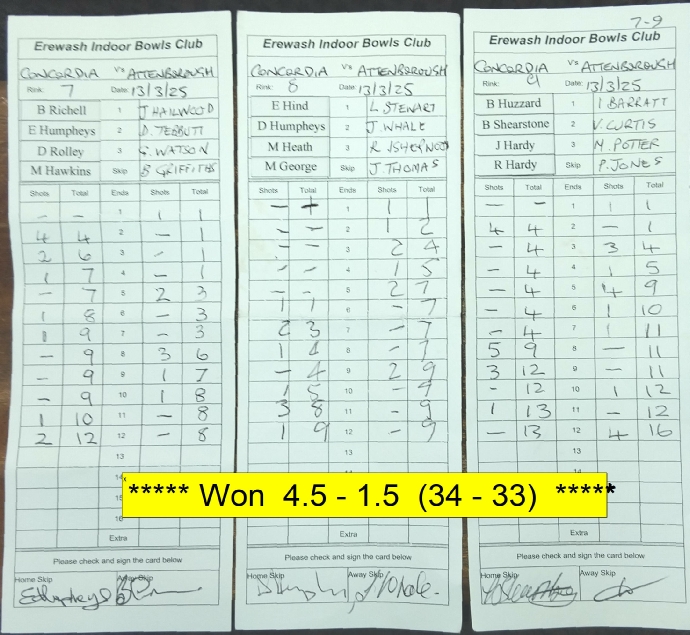 Erewash Indoor Bowls Club
CONCORDIA Vs ATTENBOROUGH
Rink: 7 Date: 13/3/25
B Richell 1 J HAILWOOD
E Humpheys 2 D. TEBBUTT
D Rolley 3 G. WATSON
M Hawkins Skip B GRIFFITHS
Shots Total Ends Shots Total
- - 1 1 1
4 4 2 - 1
2 6 3 - 1
1 7 4 - 1
- 7 5 2 3
1 8 6 - 3
1 9 7 - 3
- 9 8 3 6
- 9 9 1 7
- 9 10 1 8
1 10 11 - 8
2 12 12 - 8
13
14
16
Extra
Please check and sign the card below
Home Skip Away Skip
EHumpheys
Erewash Indoor Bowls Club
CONCORDIA Vs ATTENBOROUGH
Rink: 8 Date: 13/3/25
E Hind 1 L STEWART
D Humpheys 2 J. WHALE
M Heath 3
M George Skip J. THOMAS
Shots Total Ends Shots Total
- 1 1 1
- - 2 1 2
- - 3 2 4
- - 4 1 5
- - 5 2 7
1 1 6 - 7
2 3 7 - 7
1 4 8 - 7
- 4 9 2 9
1 5 10 - 9
3 8 11 - 9
1 9 12 - 9
13
Extra
Please check and sign the card below
Home Skip Away Skip
7-9
Erewash Indoor Bowls Club
CONCORDIA Vs ATTENBOROUGH
Rink: 9 Date: 13/3/25
B Huzzard 1 I BARRATT
B Shearstone 2 V. CURTIS
J Hardy 3 M. POTTER
R Hardy Skip P. JONES
Shots Total Ends Shots Total
- - 1 1 1
4 4 2 - 1
- 4 3 3 4
- 4 4 1 5
- 4 5 4 9
- 4 6 1 10
- 4 7 1 11
5 9 8 - 11
3 12 9 - 11
- 12 10 1 12
1 13 11 - 12
- 13 12 4 16
13
Extra
Please check and sign the card below
Home Skip Away Skip
***** Won 4.5 - 1.5 (34 - 33) *****